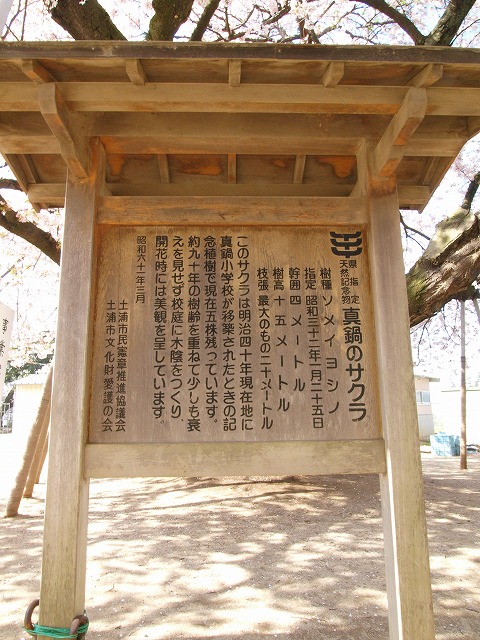 県指定
天然記念物
真鍋のサクラ
樹種 ソメイヨシノ
指定 昭和三十二年一月二十五日
幹囲 四メートル
樹高 十五メートル
枝張 最大のもの二十メートル
このサクラは明治四十年現在地に
真鍋小学校が移築されたときの記
念植樹で現在五株残っています。
約九十年の樹齢を重ねて少しも衰
えを見せず校庭に木陰をつくり、
開花時には美観を呈しています。
昭和六十一年三月
土浦市民憲章推進協議会
土浦市文化財愛護の会